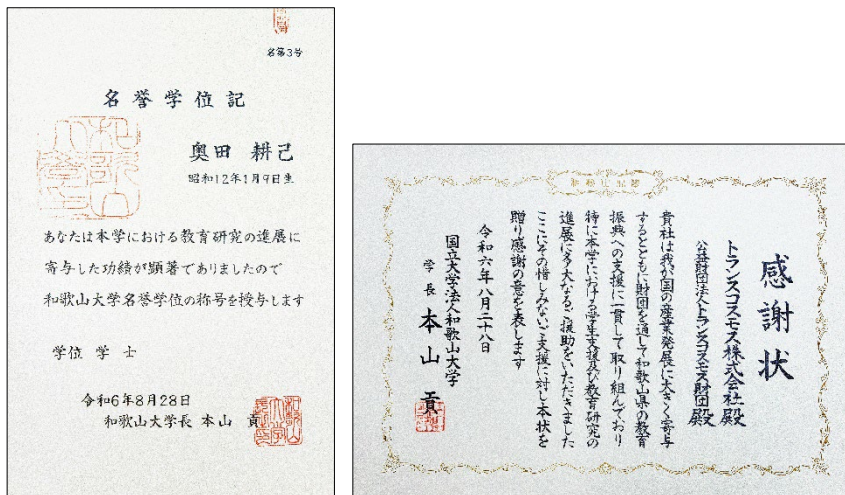 名第3号
名誉学位記
奥田 耕己
昭和12年1月9日生
あなたは本学における教育研究の進展に
寄与した功績が顕著でありましたので
和歌山大学名誉学位の称号を授与します
学位 学 士
令和6年8月28日
和歌山大学長 本山 貢
感謝状
トランスコスモス株式会社殿
公益財団法人トランスコスモス財団殿
貴社は我が国の産業発展に大きく寄与
するとともに財団を通して和歌山県の教育
振興への支援に一貫して取り組んでおり
特に本学における学生支援及び教育研究の
進展に多大なるご援助をいただきました
ここにその惜しみないご支援に対し本状を
贈り感謝の意を表します
令和六年八月二十八日
国立大学法人和歌山大学
学長 本山 貢